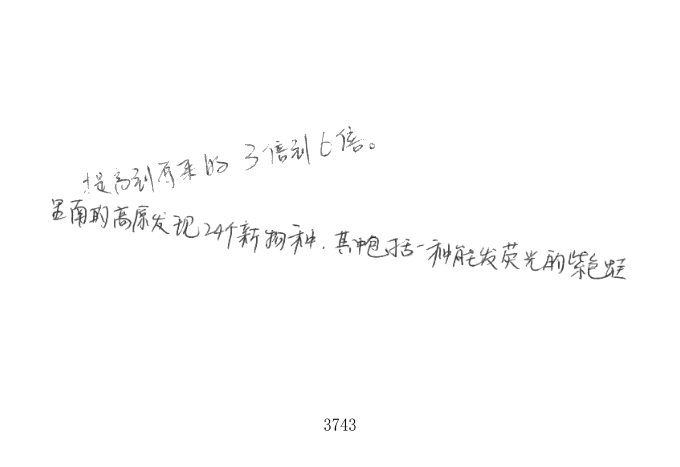 提高到原来的3倍到6倍。
里南的高原发现24个新物种，其中包括一种能发荧光的紫色蛙
3743